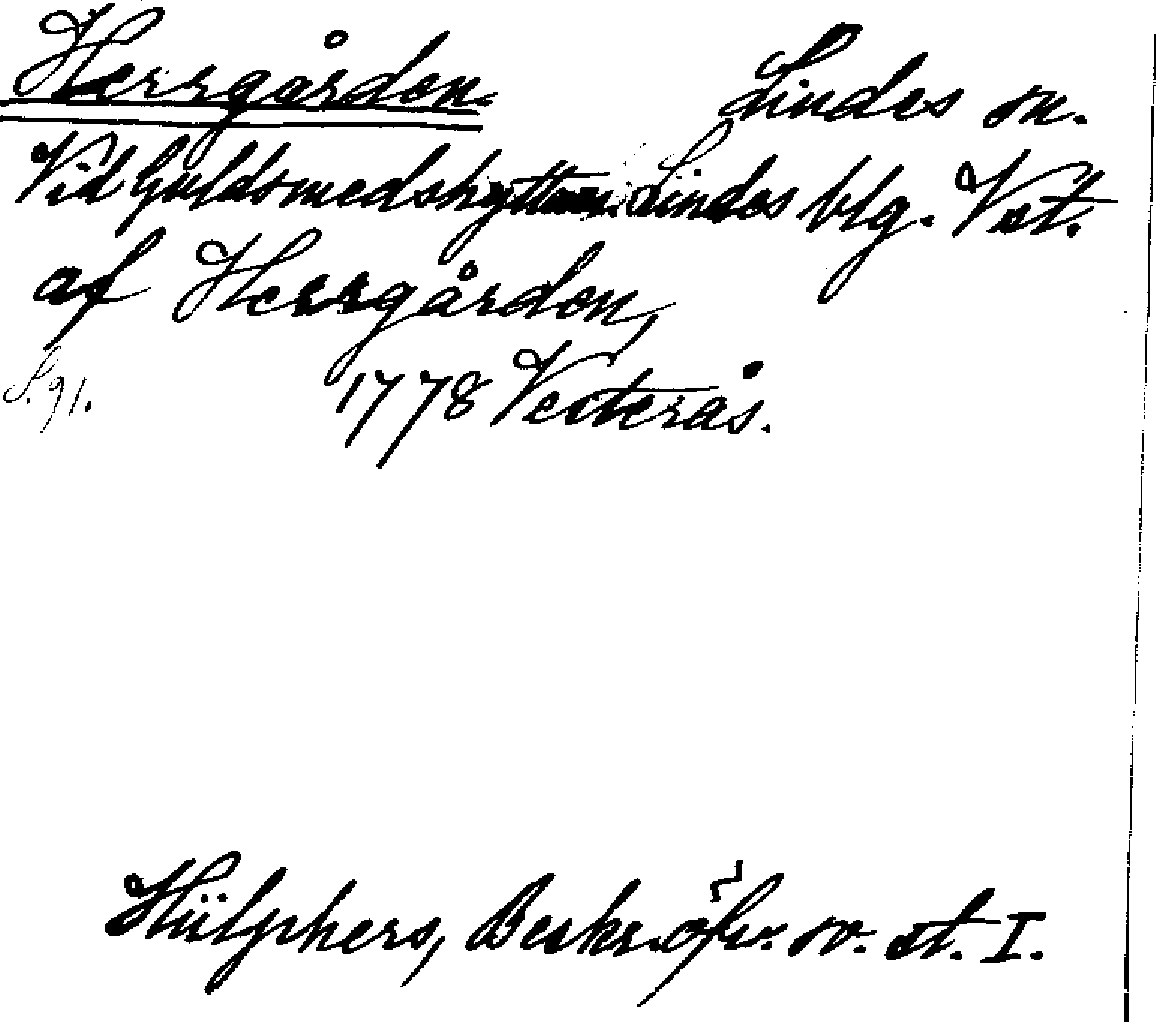 Herrgården. Lindes sn.
Vid Guldsmedshyttan. Lindes blg. Vst.
af Herrgården,
S. 91. 1778 Vesterås.
Hülphers, Beskr. öfv. sv. st. I.